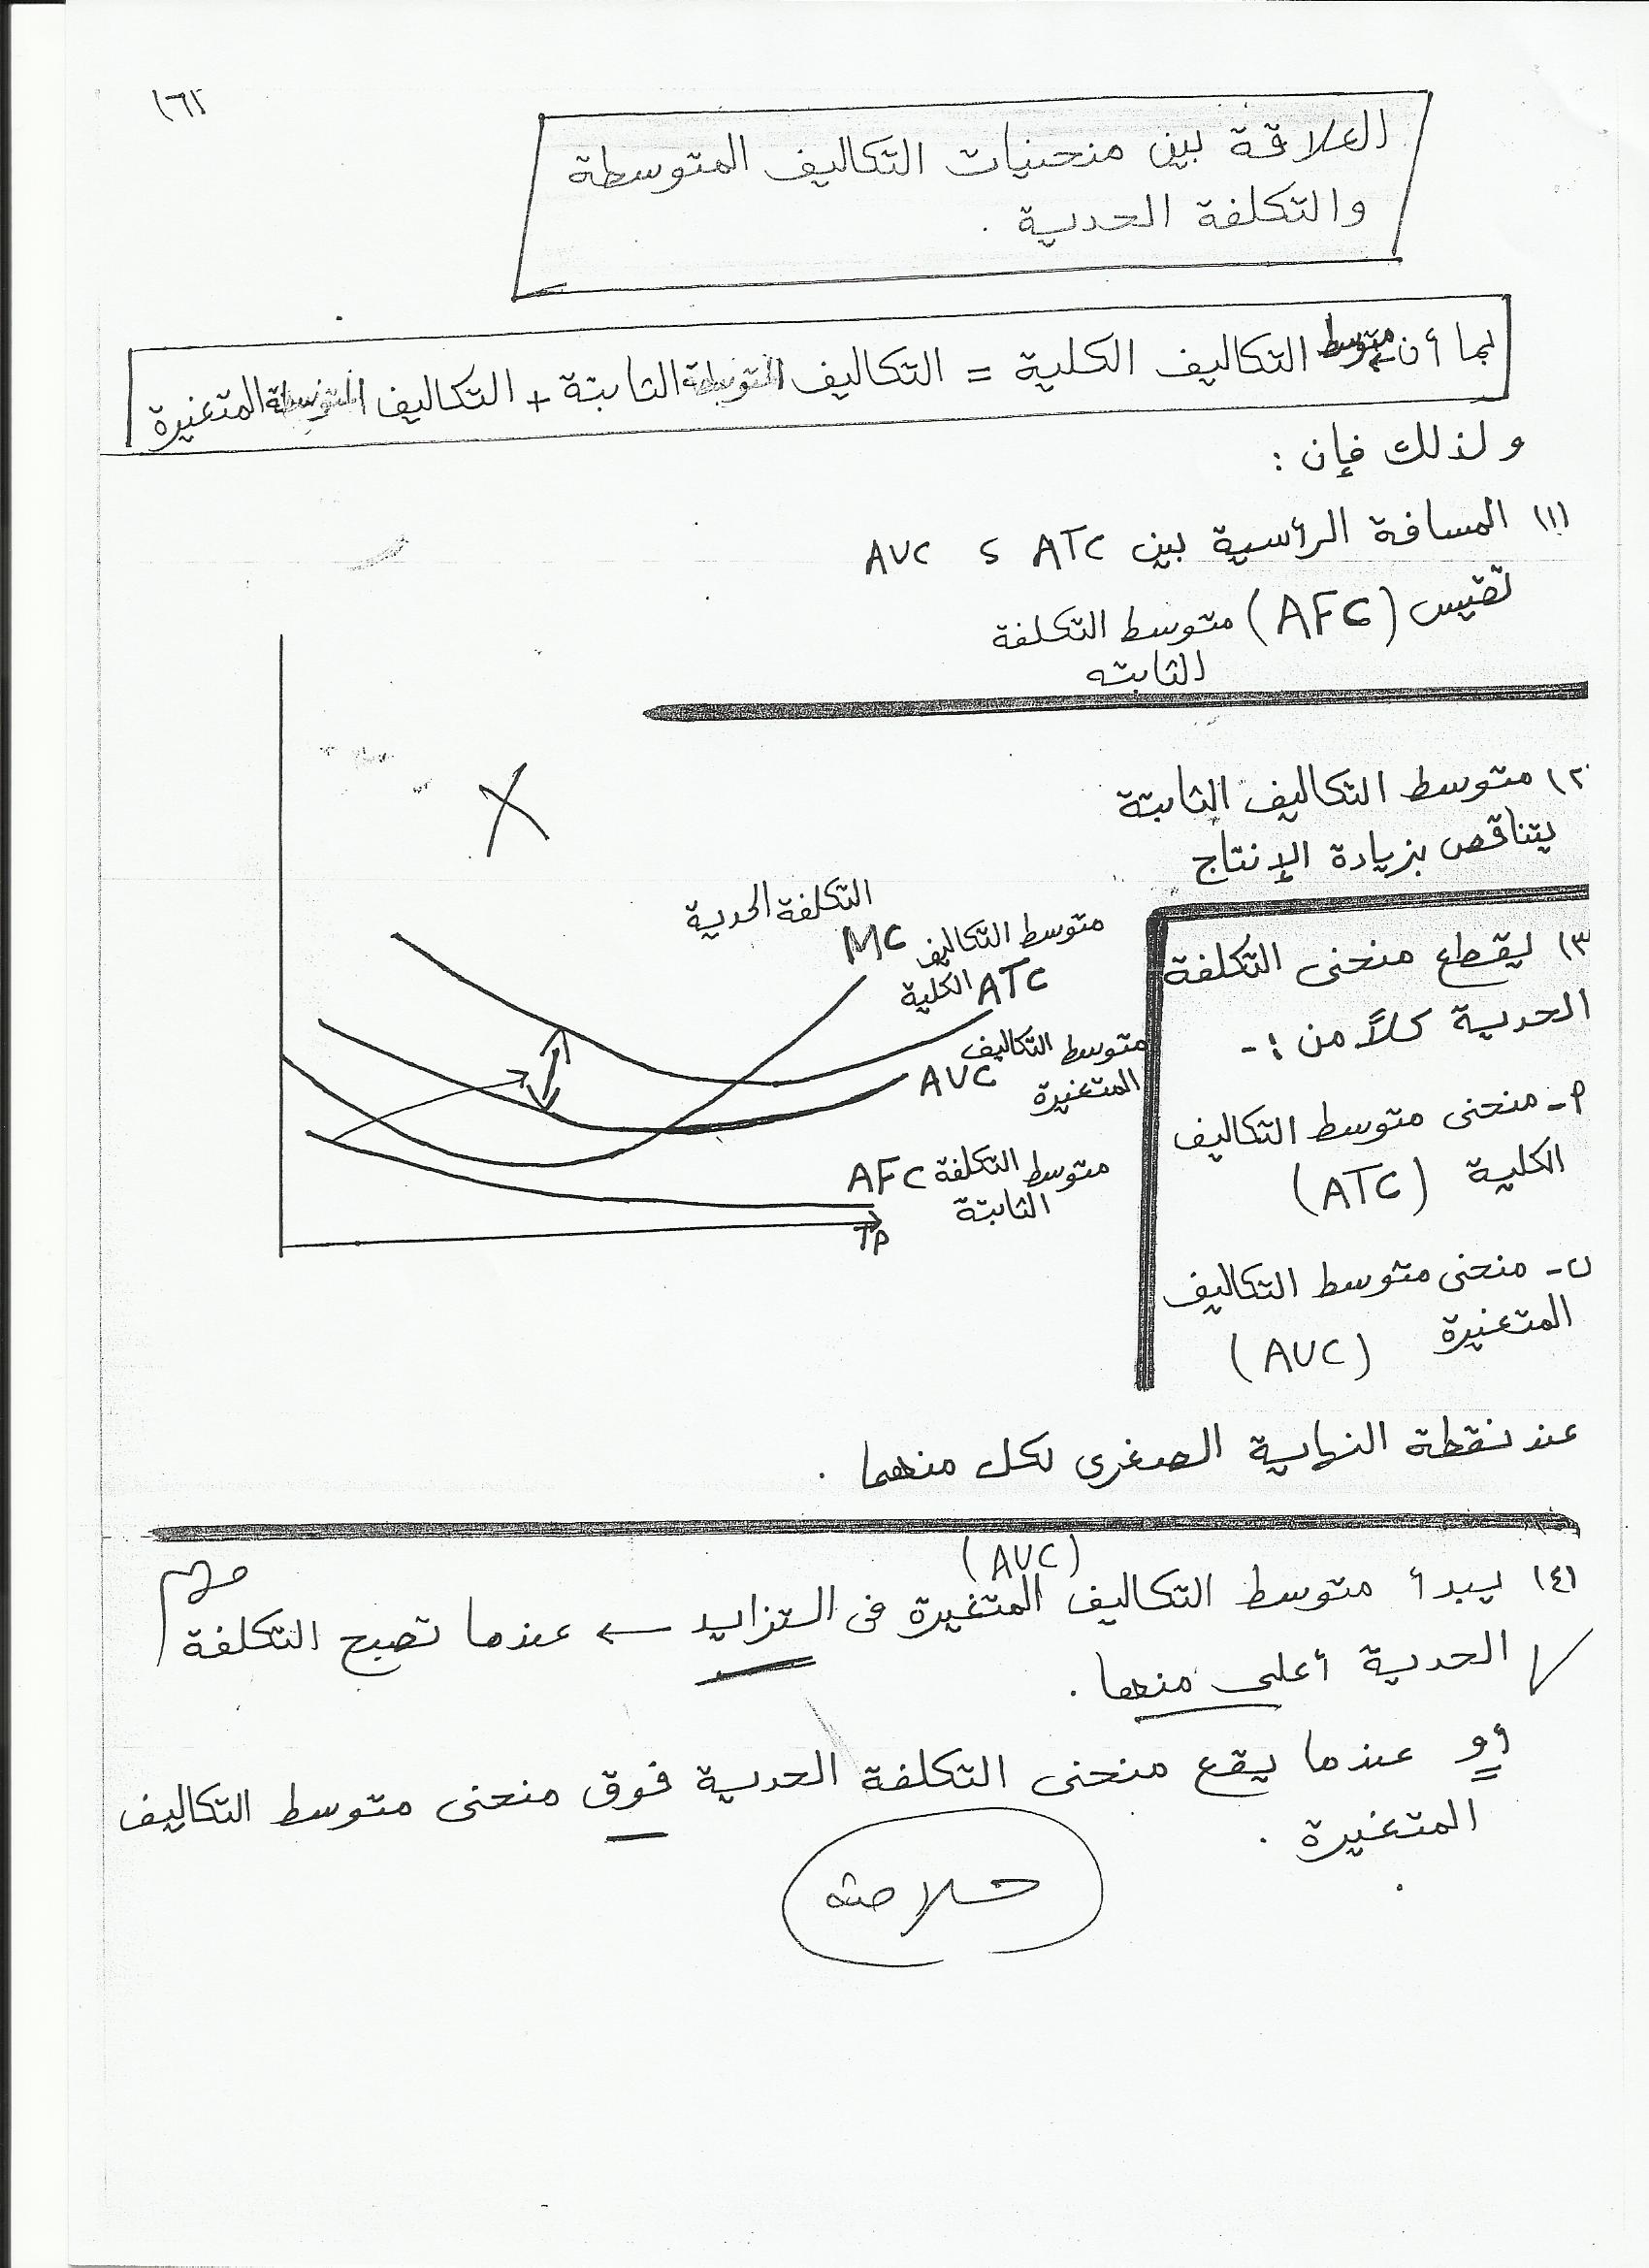 (٦)
العلاقة بين منحنيات التكاليف المتوسطة
والتكلفة الحدية .
بما أن متوسط التكاليف الكلية = التكاليف المتوسطة الثابتة + التكاليف المتوسطة المتغيرة
ولذلك فإن :
(١) المسافة الرأسية بين ATC و AVC
تقيس (AFC) متوسط التكلفة
الثابته
(٢) متوسط التكاليف الثابتة
يتناقص بزيادة الإنتاج
(٣) يقطع منحنى التكلفة
الحدية كلاً من :-
أ- منحنى متوسط التكاليف
الكلية (ATC)
ب- منحنى متوسط التكاليف
المتغيرة (AVC)
التكلفة الحدية
MC
متوسط التكاليف
الكلية ATC
متوسط التكاليف
المتغيرة AVC
متوسط التكلفة AFC
الثابتة
TP
عند نقطة النهاية الصغرى لكل منهما .
(AVC)
(٤) يبدأ متوسط التكاليف المتغيرة فى التزايد ← عندما تصبح التكلفة
الحدية أعلى منها .
أو عندما يقع منحنى التكلفة الحدية فوق منحنى متوسط التكاليف
المتغيرة .
خلاصه